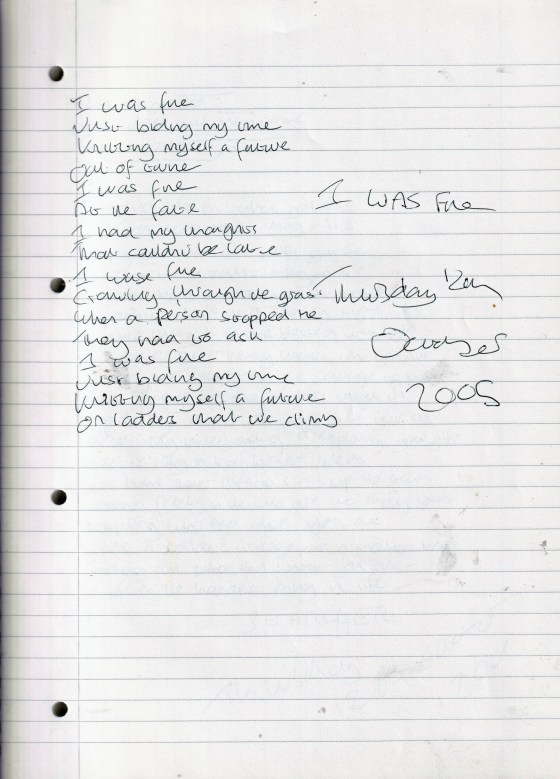 I was fine
Just biding my time
Knitting myself a future
Out of twine
I was fine
At the
I had my thoughts
That couldn't be
I wase fine
Crawling through the grass
When a person stopped me
They had to ask
I was fine
Just biding my time
Knitting myself a future
On ladders that we climb
I WAS Fine
Thursday
October
2005